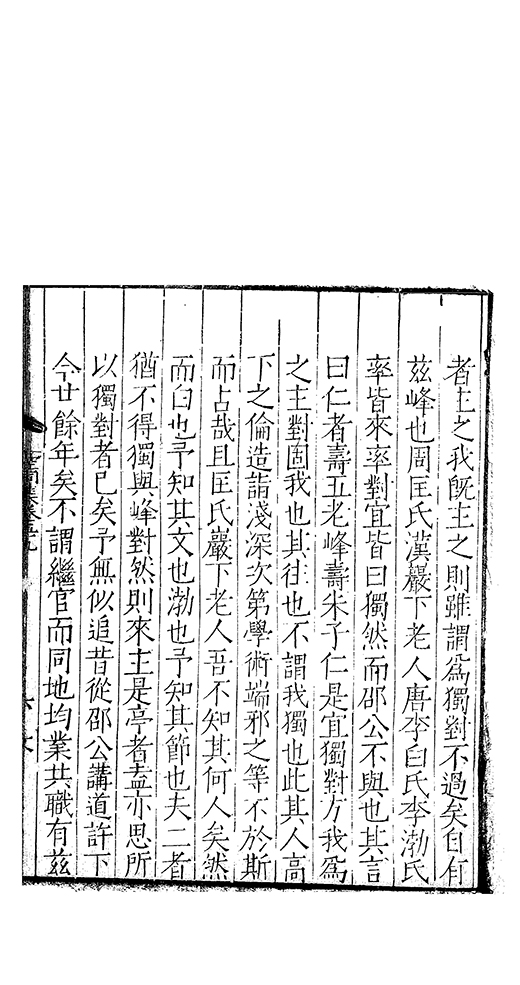 者主之我旣主之則雖謂爲獨對不過矣自有
玆峰也周匡氏漢巖下老人唐李白氏李渤氏
率皆來率對宜皆曰獨然而邵公不與也其言
曰仁者壽五老峰壽朱子仁是宜獨對方我爲
之主對固我也其徃也不謂我獨也此其人高
下之倫造詣淺深次第學術端邪之等不於斯
而占哉且匡氏巖下老人吾不知其何人矣然
而白也予知其文也渤也予知其節也夫二者
猶不得獨與峰對然則來主是亭者盍亦思所
以獨對者已矣予無似追昔從邵公講道許下
今廿餘年矣不謂繼官而同地均業共職有玆